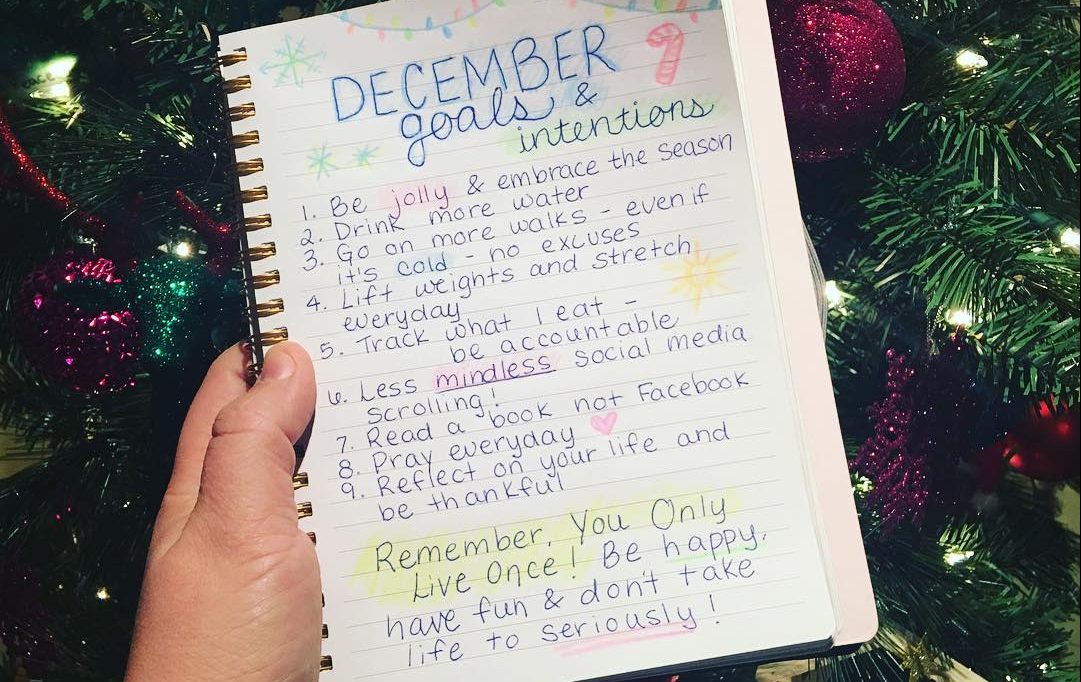 DECEMBER
goals &
intentions
1. Be jolly & embrace the season
2. Drink more water
3. Go on more walks - even if
it's cold - no excuses
4. Lift weights and stretch
everyday
5. Track what I eat -
be accountable
6. Less mindless social media
scrolling!
7. Read a book not Facebook
8. Pray everyday
9. Reflect on your life and
be thankful
Remember, You Only
Live Once! Be happy,
have fun & don't take
life to seriously!